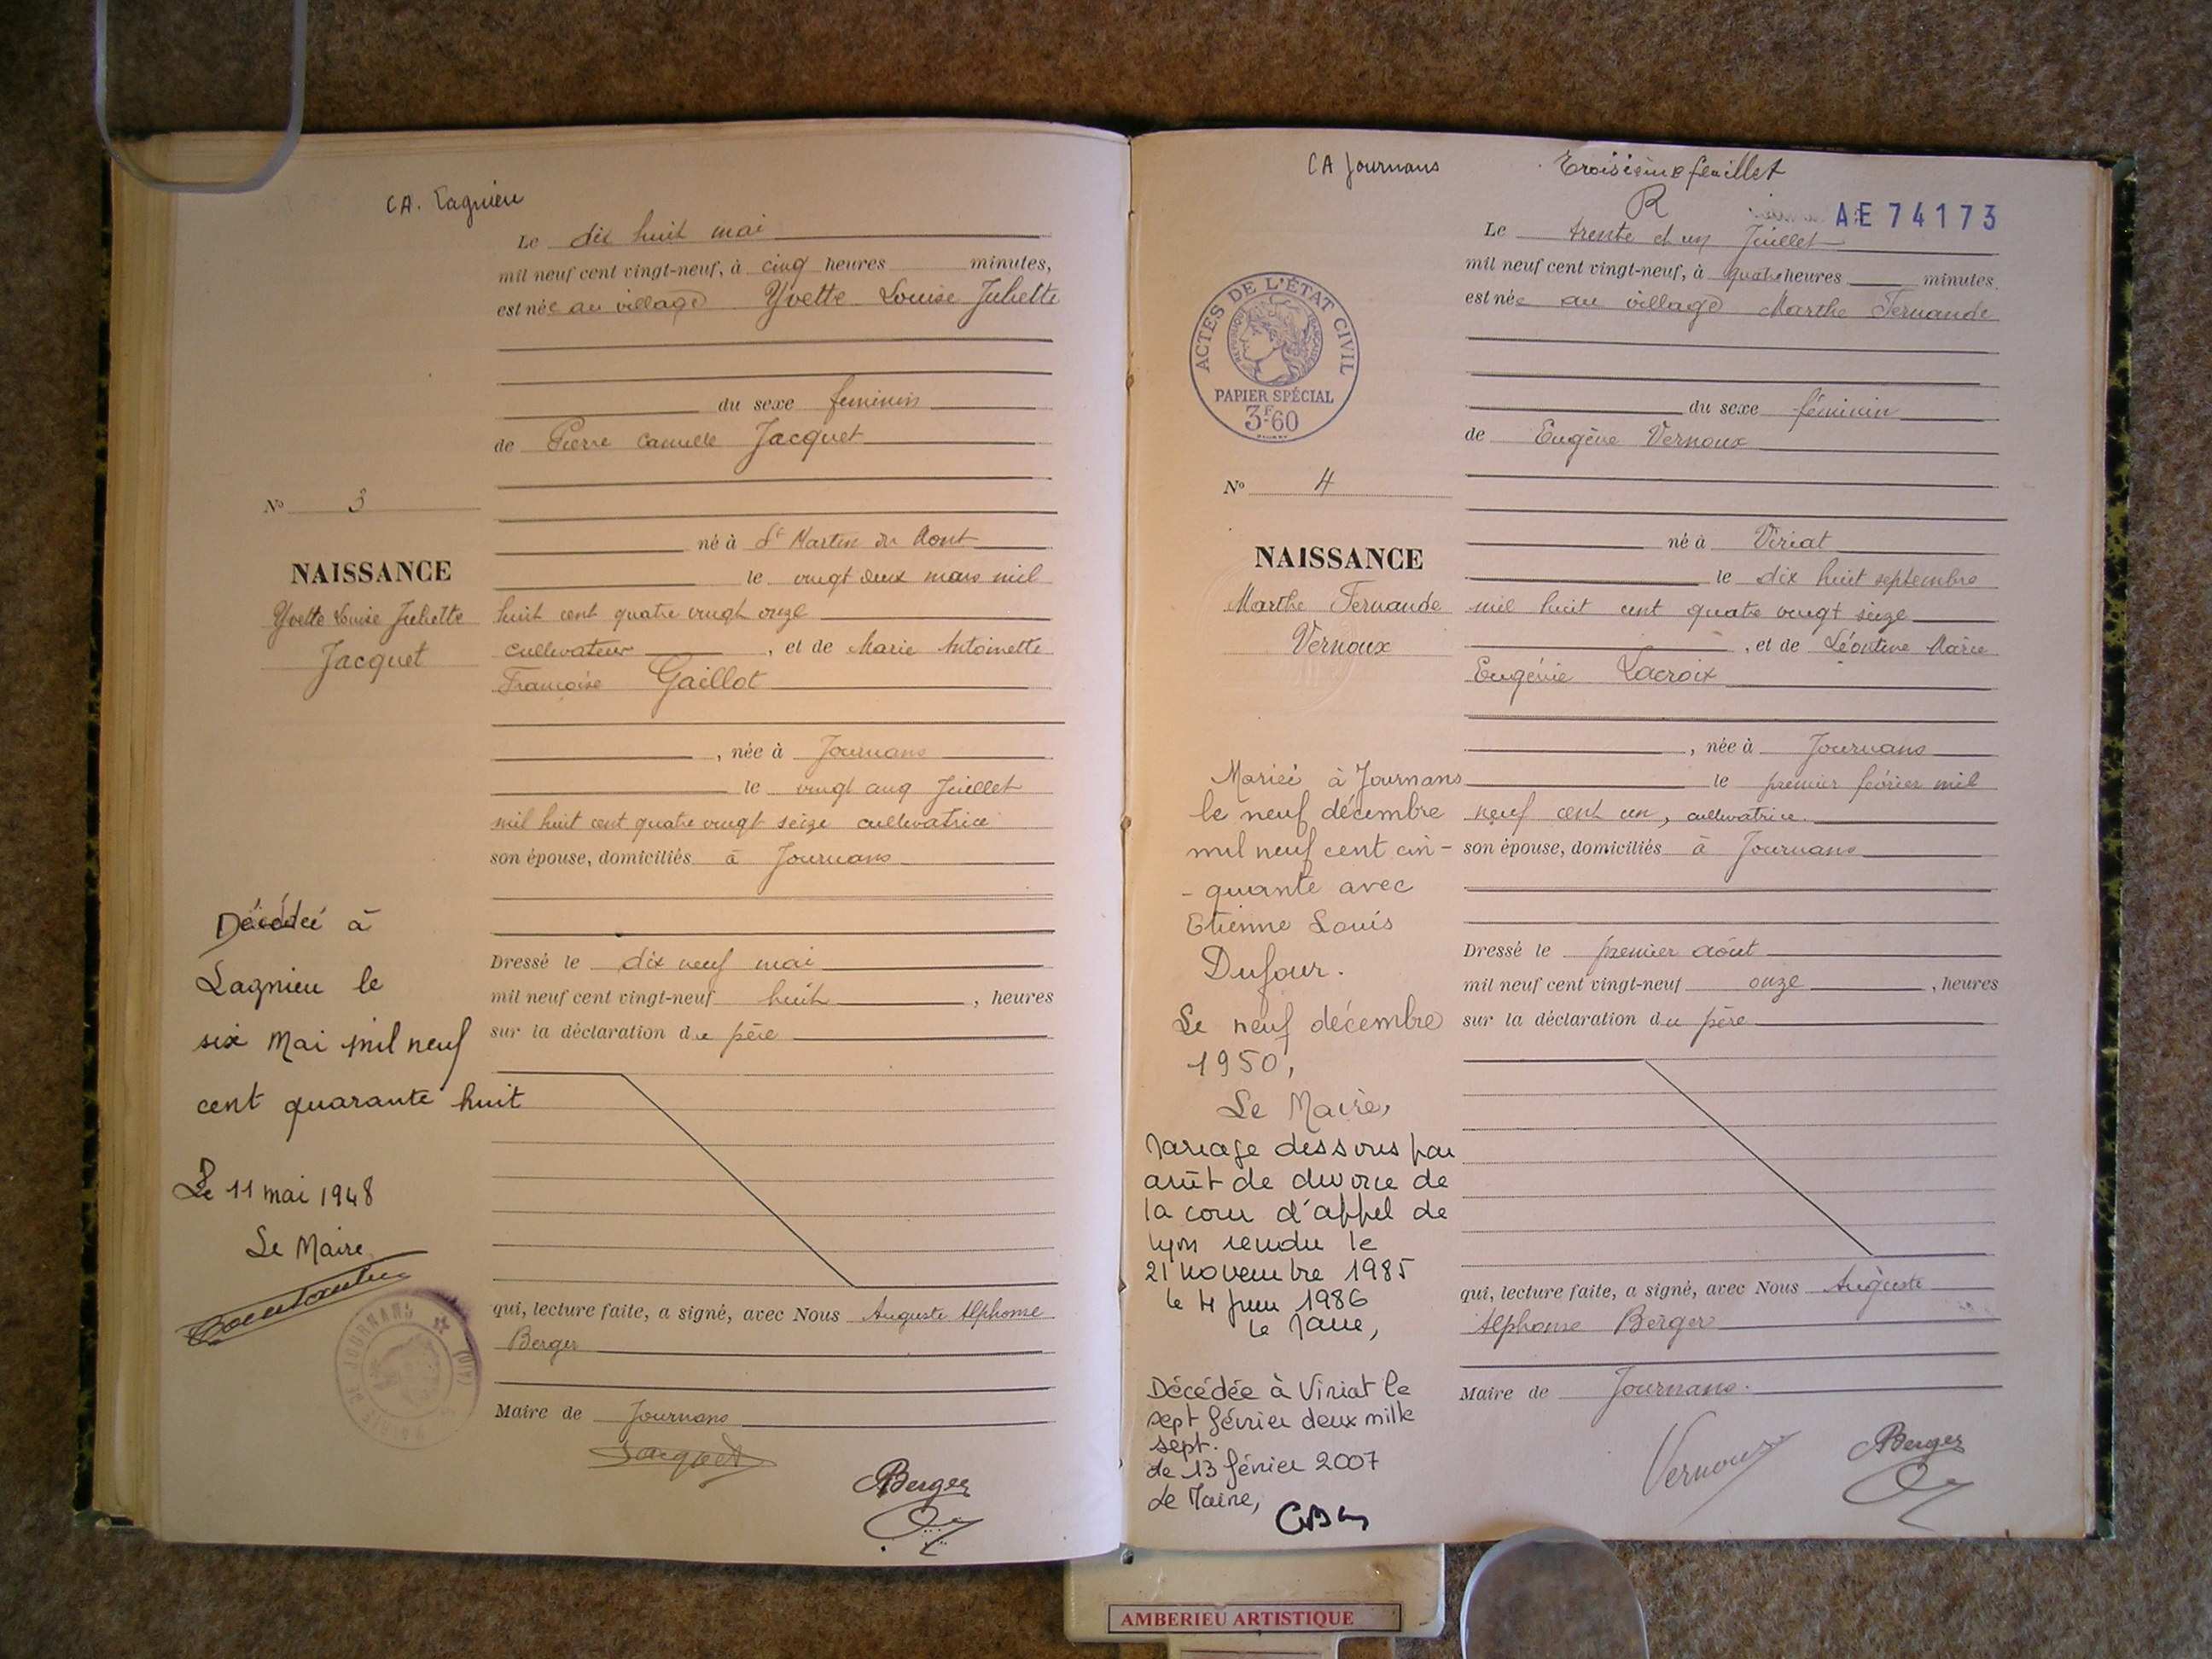 CA. Lagnieu
Le dix huit mai
mil neuf cent vingt-neuf, à cinq heures minutes,
est née au village Yvette Louise Juliette
du sexe feminin
de Pierre Camille Jacquet
N° 3
né à St Martin du Mont
NAISSANCE
le vingt deux mars mil
Yvette Louise Juliette
Jacquet
huit cent quatre vingt onze
cultivateur, et de Marie Antoinette
Françoise Gaillot
, née à Journans
le vingt cinq Juillet
mil huit cent quatre vingt seize cultivatrice
son épouse, domiciliés à Journans
Décédée à
Lagnieu le
six Mai mil neuf
cent quarante huit
Le 11 mai 1948
Le Maire
MAIRIE DE JOURNANS (AIN)
Dressé le dix neuf mai
mil neuf cent vingt-neuf huit, heures
sur la déclaration du père
qui, lecture faite, a signé, avec Nous Auguste Alphonse
Berger
Maire de Journans
Jacquet
ABerger
CA Journans
Troisième feuillet
R
AE 74173
Le trente et un Juillet
mil neuf cent vingt-neuf, à quatre heures minutes.
est née au village Marthe Fernande
ACTES DE L'ÉTAT CIVIL
RÉPUBLIQUE FRANÇAISE
PAPIER SPÉCIAL
3F60
du sexe féminin
de Eugène Vernoux
N° 4
né à Viriat
NAISSANCE
le dix huit septembre
Marthe Fernande
Vernoux
mil huit cent quatre vingt seize
, et de Léontine Marie
Eugénie Lacroix
, née à Journans
le premier février mil
neuf cent un, cultivatrice.
son épouse, domiciliés à Journans
Mariée à Journans
le neuf décembre
mil neuf cent cin-
-quante avec
Etienne Louis
Dufour.
Le neuf décembre
1950,
Le Maire,
Mariage dissous par
arrêt de divorce de
la cour d'appel de
Lyon rendu le
21 novembre 1985
le 4 juin 1986
Le Maire,
Décédée à Viriat le
sept février deux mille
sept.
Le 13 février 2007
Le Maire,
Dressé le premier août
mil neuf cent vingt-neuf onze, heures
sur la déclaration du père
qui, lecture faite, a signé, avec Nous Auguste
Alphonse Berger
Maire de Journans.
Vernoux
ABerger
AMBERIEU ARTISTIQUE